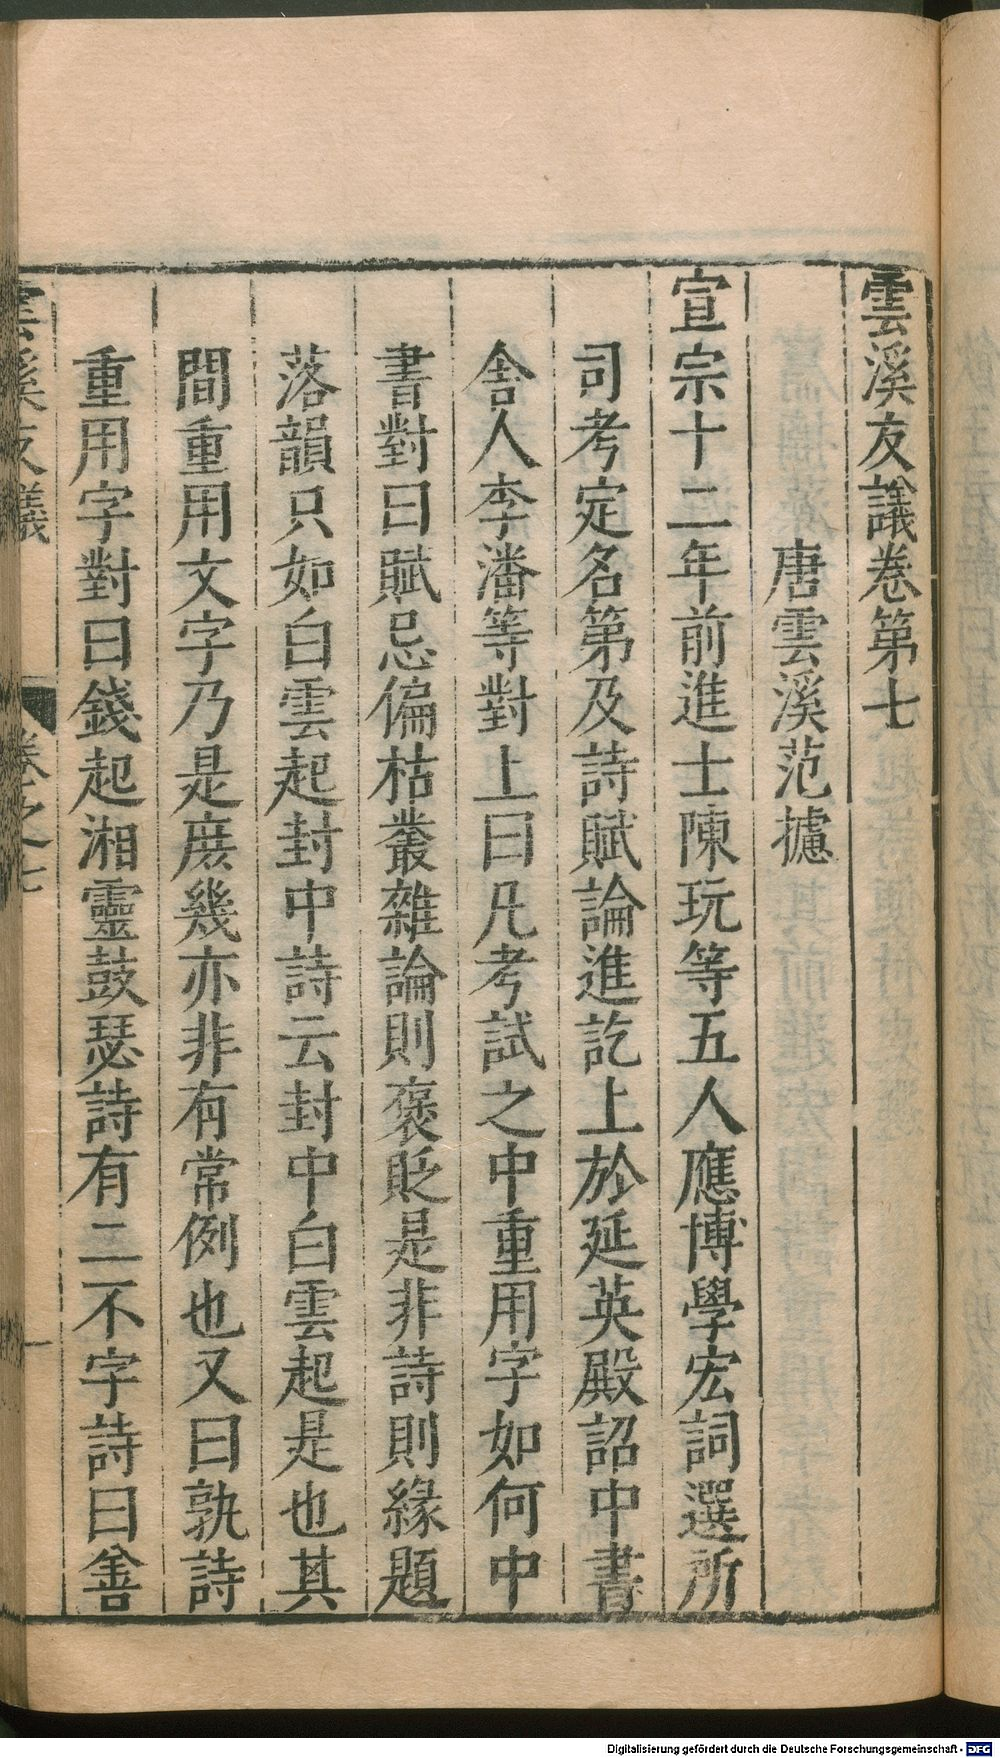 雲溪友議卷第七
唐雲溪范攄
宣宗十二年前進士陳玩等五人應博學宏詞選所
司考定名第及詩賦論進訖上於延英殿詔中書
舍人李潘等對上曰凡考試之中重用字如何中
書對曰賦忌偏枯叢雜論則褒貶是非詩則緣題
落韻只如白雲起封中詩云封中白雲起是也其
間重用文字乃是庻幾亦非有常例也又曰孰詩
重用字對曰錢起湘靈鼓瑟詩有二不字詩曰善
雲溪友議 卷之七 一
Digitalisierung gefördert durch die Deutsche Forschungsgemeinschaft - DFG